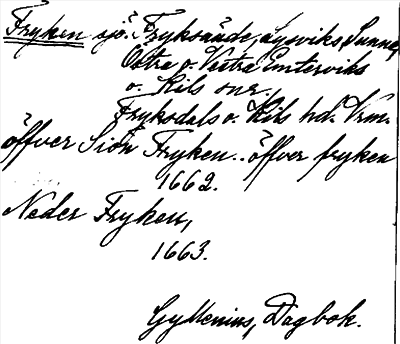 Fryken sjö. Fryksände, Lysviks, Sunne,
Östra o. Vestra Emterviks
o. Kils snr.,
Fryksdals o. Kils hd. Vrm.
öffver Siön Fryken.. öffver fryken
1662.
Neder Fryken,
1663.
Gyllenius, Dagbok.